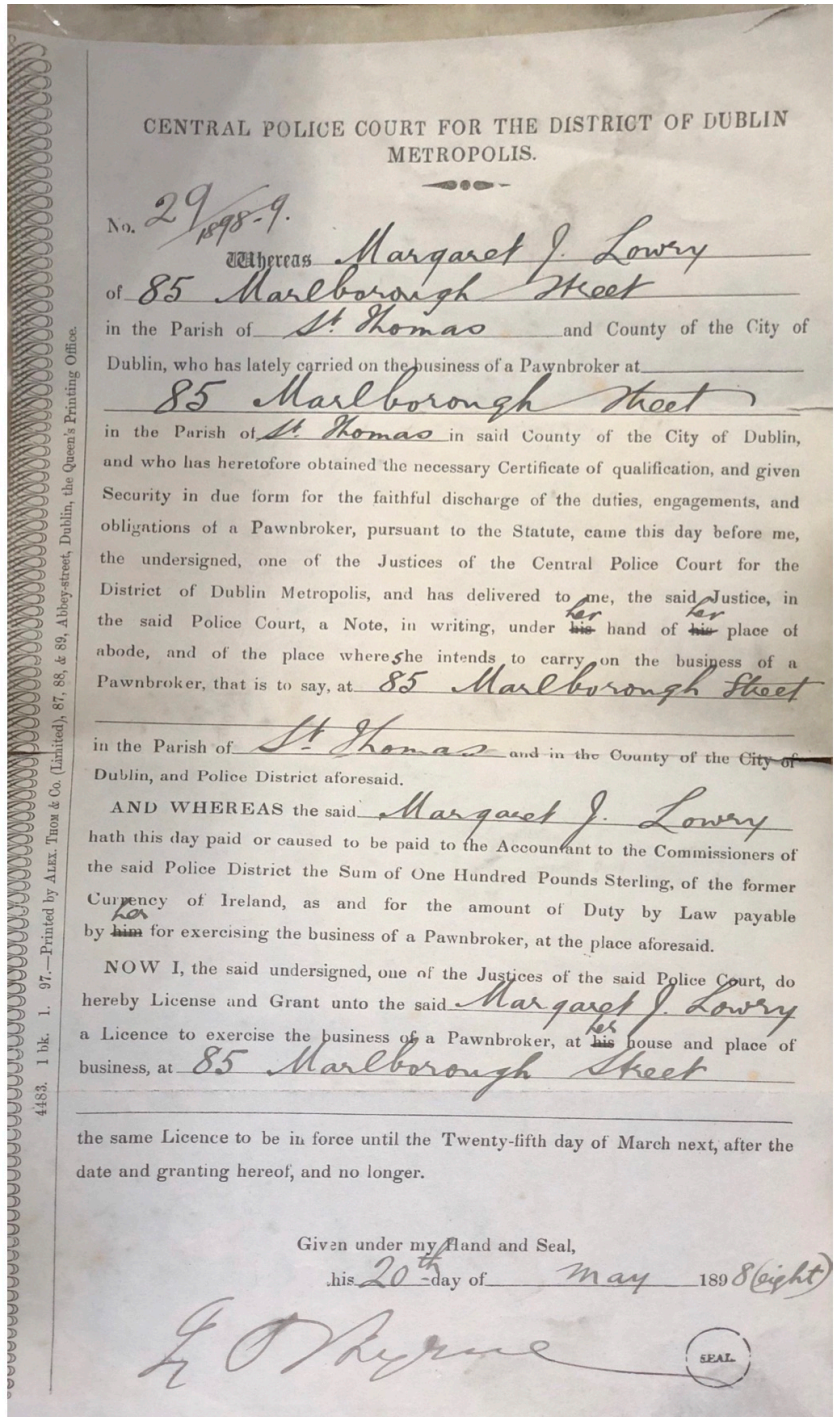 CENTRAL POLICE COURT FOR THE DISTRICT OF DUBLIN
METROPOLIS.
No. 29/1898-9.
Whereas Margaret J. Lowry
of 85 Marlborough Street
in the Parish of St Thomas and County of the City of
Dublin, who has lately carried on the business of a Pawnbroker at
85 Marlborough Street
in the Parish of St Thomas in said County of the City of Dublin,
and who has heretofore obtained the necessary Certificate of qualification, and given
Security in due form for the faithful discharge of the duties, engagements, and
obligations of a Pawnbroker, pursuant to the Statute, came this day before me,
the undersigned, one of the Justices of the Central Police Court for the
District of Dublin Metropolis, and has delivered to me, the said Justice, in
her her
the said Police Court, a Note, in writing, under his hand of his place of
abode, and of the place where she intends to carry on the business of a
Pawnbroker, that is to say, at 85 Marlborough Street
in the Parish of St Thomas and in the County of the City of
Dublin, and Police District aforesaid.
AND WHEREAS the said Margaret J. Lowry
hath this day paid or caused to be paid to the Accountant to the Commissioners of
the said Police District the Sum of One Hundred Pounds Sterling, of the former
Currency of Ireland, as and for the amount of Duty by Law payable
her
by him for exercising the business of a Pawnbroker, at the place aforesaid.
NOW I, the said undersigned, one of the Justices of the said Police Court, do
hereby License and Grant unto the said Margaret J. Lowry
her
a Licence to exercise the business of a Pawnbroker, at his house and place of
business, at 85 Marlborough Street
the same Licence to be in force until the Twenty-fifth day of March next, after the
date and granting hereof, and no longer.
Given under my Hand and Seal,
his 20th day of May 1898 (eight)
SEAL.
4483. 1 bk. 1. 97.—Printed by ALEX. THOM & Co. (Limited), 87, 88, & 89, Abbey-street, Dublin, the Queen's Printing Office.